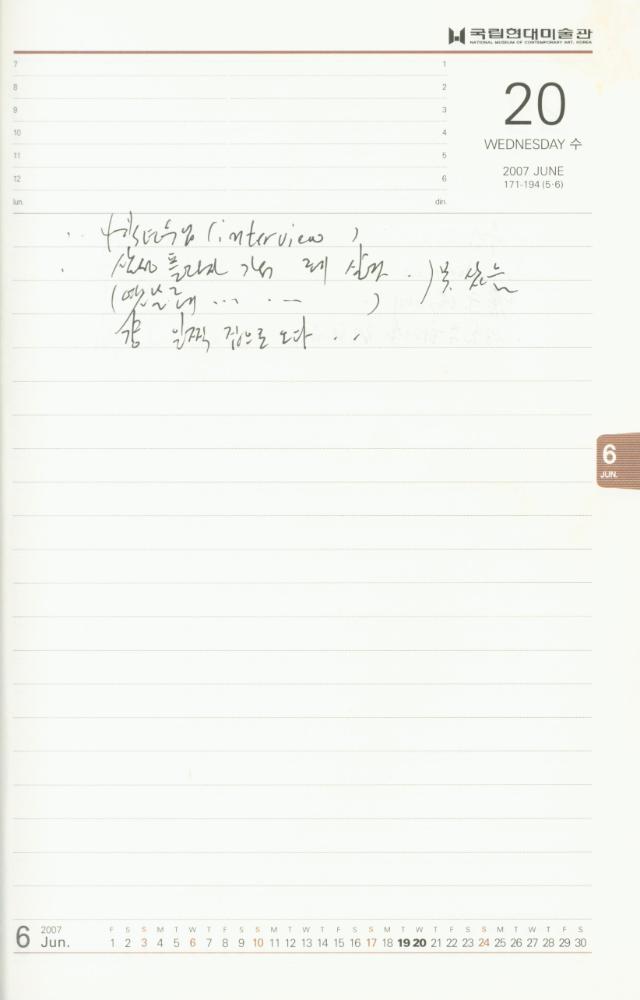 국립현대미술관
NATIONAL MUSEUM OF CONTEMPORARY ART, KOREA
7 1
8 2
9 3
10 4
11 5
12 6
lun. din.
20
WEDNESDAY 수
2007 JUNE
171-194 (5·6)
(interview)
삼성 플라자 가서
(옛날 ... . — )
일찍 집으로 오다 . .
6
JUN.
6 2007 Jun.
F S S M T W T F S S M T W T F S S M T W T F S S M T W T F S
1 2 3 4 5 6 7 8 9 10 11 12 13 14 15 16 17 18 19 20 21 22 23 24 25 26 27 28 29 30